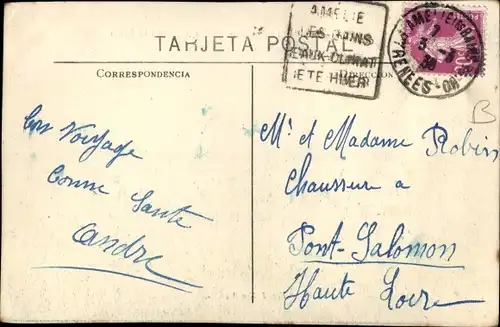 AMÉLIE
LES BAINS
EAUX CLIMAT
ÉTÉ HIVER
AMELIE-LES-BAINS
PYRENEES-OR.
TARJETA POSTAL
CORRESPONDENCIA
DIRECCION
Bon Voyage
Bonne Santé
André
Mr et Madame Robin
Chausseur a
Pont-Salomon
Haute Loire
B